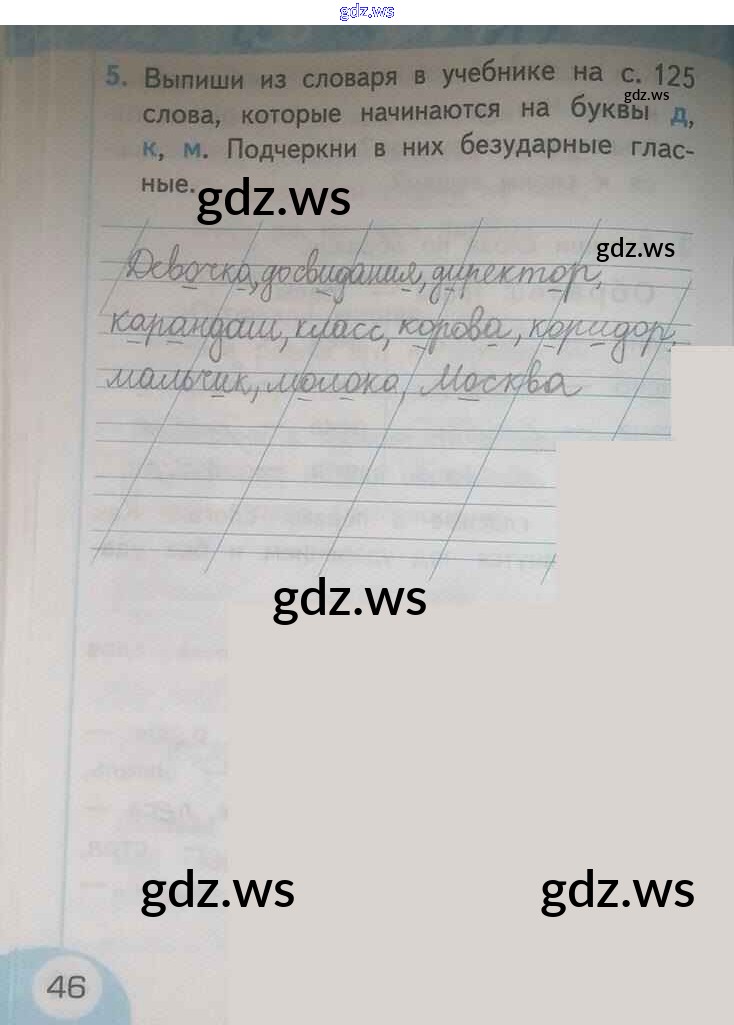 gdz.ws
5. Выпиши из словаря в учебнике на с. 125
gdz.ws
слова, которые начинаются на буквы д,
к, м. Подчеркни в них безударные глас-
ные.
gdz.ws
gdz.ws
Девочка, досвидания, директор,
карандаш, класс, корова, коридор,
мальчик, молоко, Москва
gdz.ws
gdz.ws
gdz.ws
46